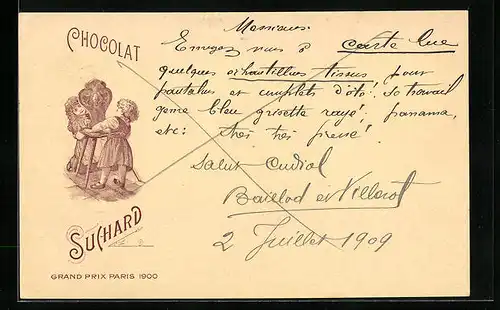 CHOCOLAT
SUCHARD
GRAND PRIX PARIS 1900
Messieurs.
Envoyez nous à carte lue
quelques échantillons tissus pour
pantalons et complets d'été!
genre bleu grisette rayé! panama,
etc: très très pressé!
Salut Cordial
Baillod et Villerot
2 Juillet 1909